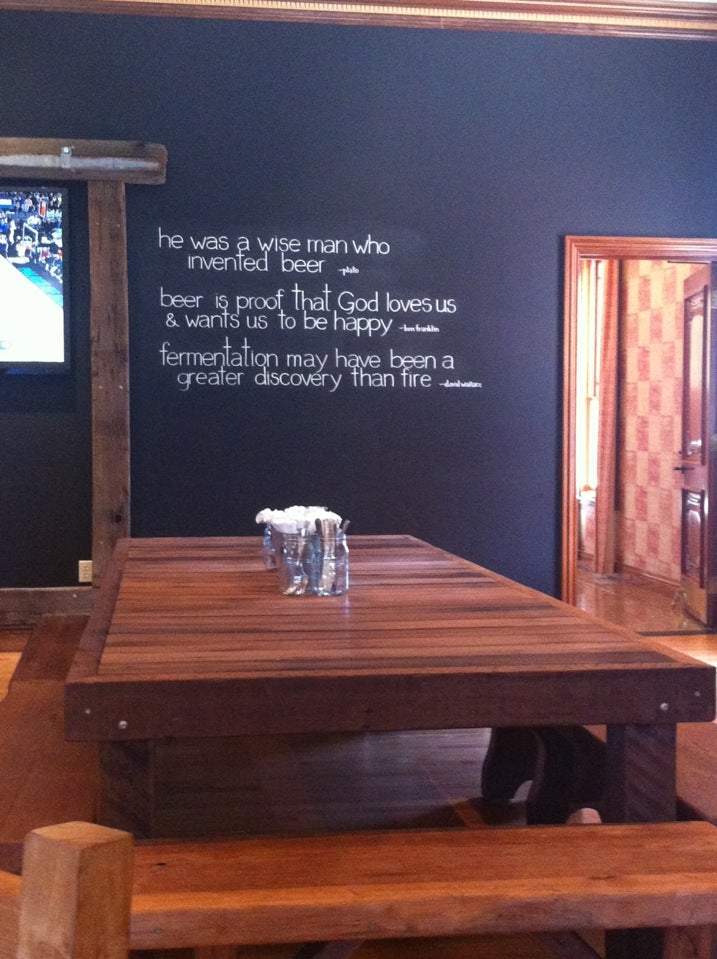 he was a wise man who
invented beer -plato
beer is proof that God loves us
& wants us to be happy -ben franklin
fermentation may have been a
greater discovery than fire -david wallace